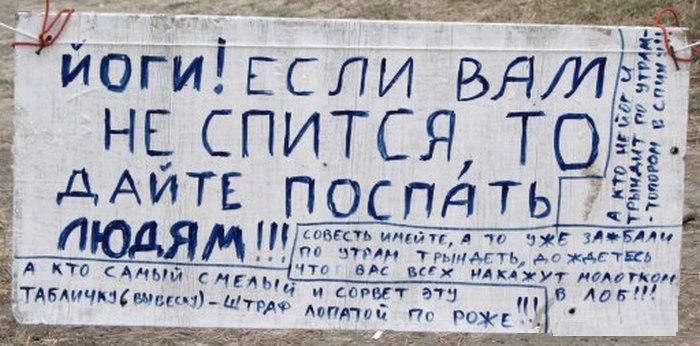 ЙОГИ! ЕСЛИ ВАМ
НЕ СПИТСЯ, ТО
ДАЙТЕ ПОСПАТЬ
ЛЮДЯМ!!!
А КТО НЕ ЙОГ И
ТРЫНДИТ ПО УТРАМ-
-ТОПОРОМ В СПИНУ!!!
СОВЕСТЬ ИМЕЙТЕ, А ТО УЖЕ ЗАЖБАЛИ
ПО УТРАМ ТРЫНДЕТЬ, ДОЖДЕТЕСЬ
ЧТО ВАС ВСЕХ НАКАЖУТ МОЛОТКОМ
В ЛОБ!!!
А КТО САМЫЙ СМЕЛЫЙ И СОРВЕТ ЭТУ
ТАБЛИЧКУ (ВЫВЕСКУ) - ШТРАФ ЛОПАТОЙ ПО РОЖЕ!!!